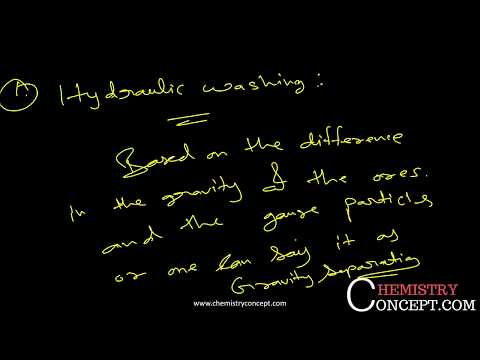 A. Hydraulic washing :
Based on the difference
in the gravity of the ores.
and the gauge particles
or one can say it as
Gravity separation
www.chemistryconcept.com
CHEMISTRY
CONCEPT.COM